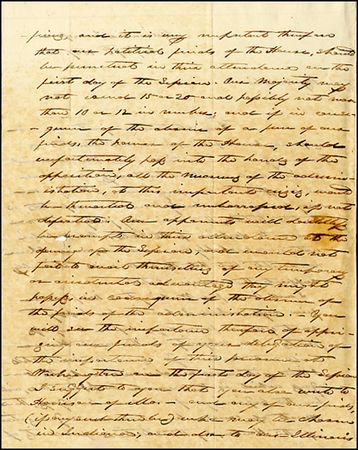 and it is very important therefore
that our political friends of the House, should
be punctual in their attendance on the
first day of the Session. Our Majority may
not exceed 15 or 20 and possibly not more
than 10 or 12 in number; and if in conse-
quence of the absence of a few of our
friends, the power of the House, should
unfortunately pass into the hands of the
opposition, all the measures of the admin-
istration, at this important crisis,
be thwarted and embarrassed if not
defeated. Our opponents will doubtless
be prompt in their attendance at the
opening of the Session, and would not
fail to avail themselves of any temporary
or accidental advantage they might
possess in consequence of the absence of
the friends of the administration. - You
will see the importance therefore of appri-
zing our friends of your delegation of
the importance of their presence at
Washington on the first day of the Session
I suggest to you that you also write to
of our friends,
(if any such there be) who may be chosen
in Indiana, and also to our Illinois